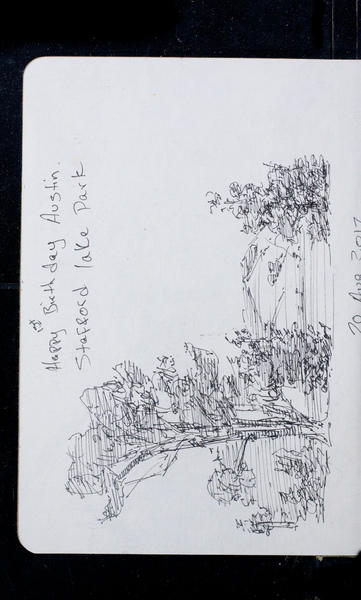 Happy Birthday Austin.
Stafford lake Park
20 Aug 2017